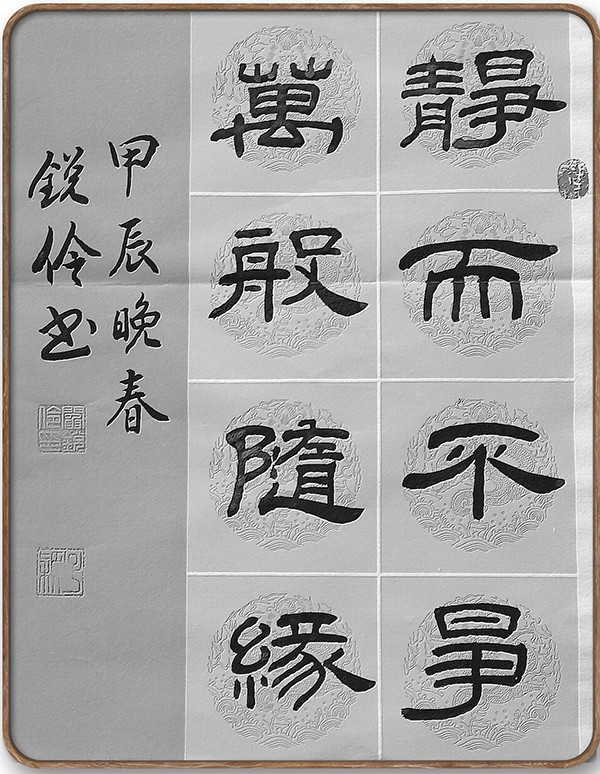 靜而不爭
萬般隨緣
甲辰晚春
銳伶书